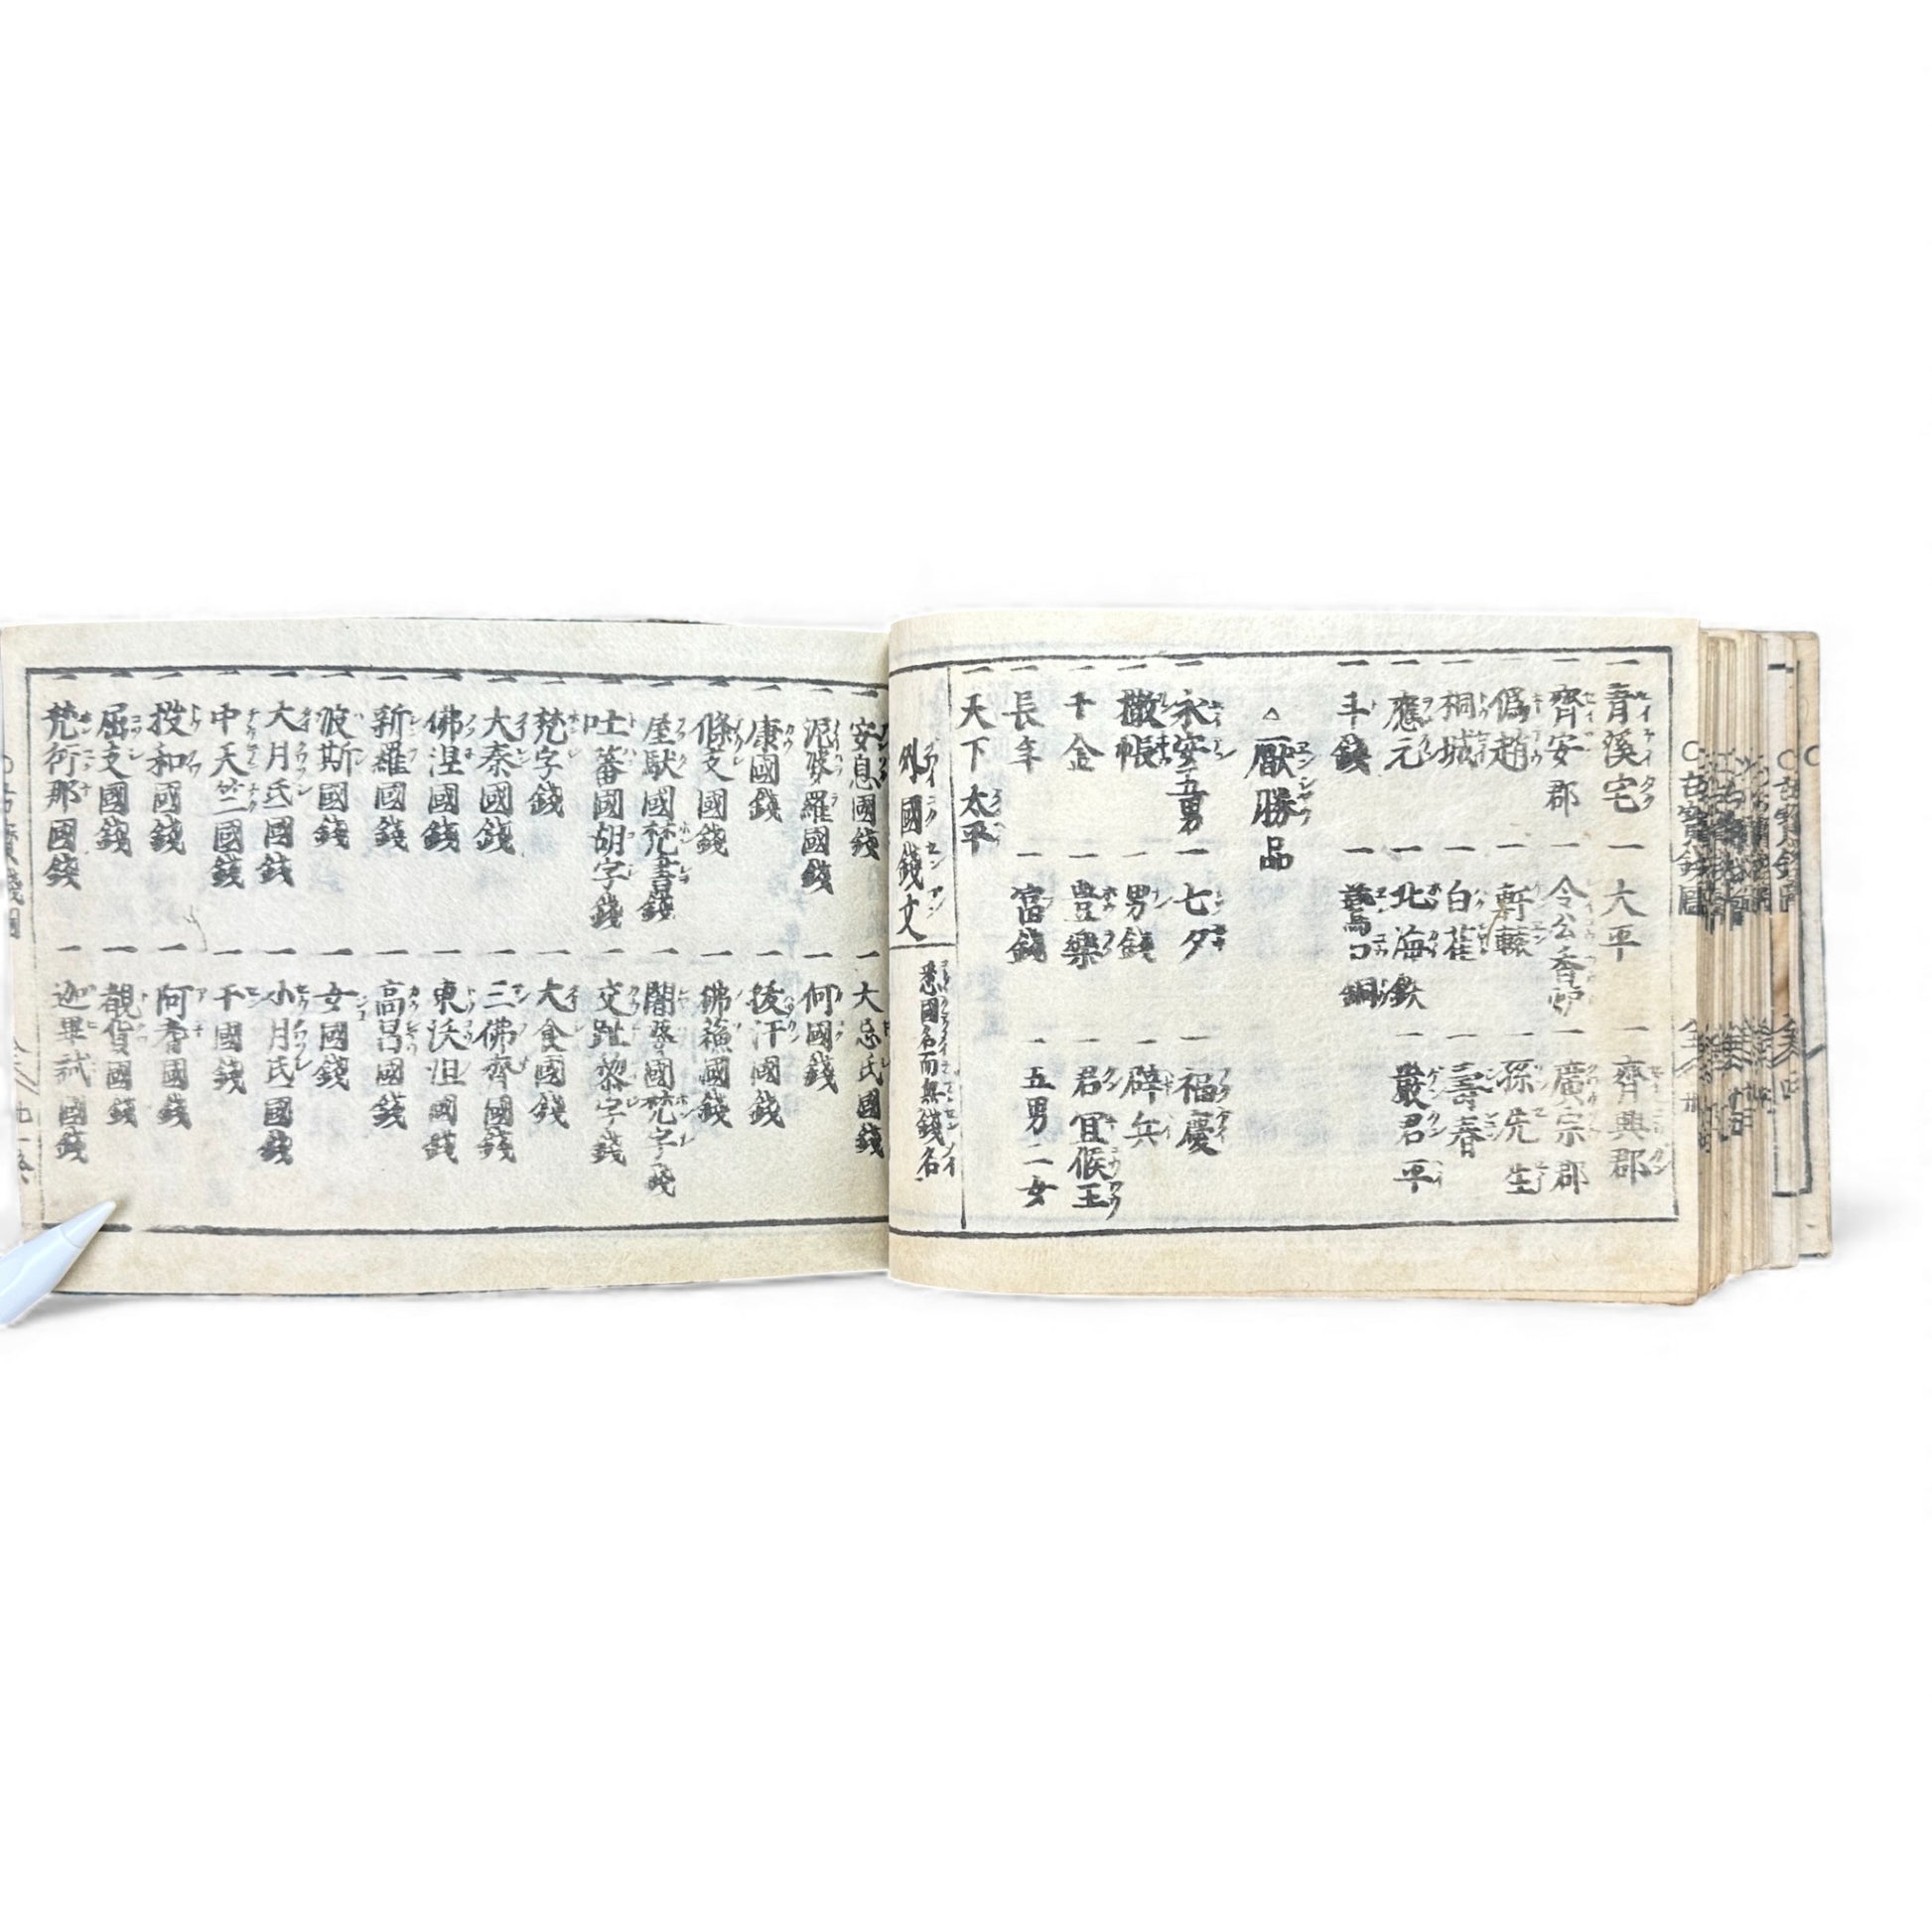 一青溪宅 一大平 一齊興郡
一齊安郡 一令公香炉 一廣宗郡
一僞趙 一軒轅 一孫先生
一桐城 一白雀 一壽春
一應元 一北海鉄 一嚴君平
一斗錢 一鷰口銅
△厭勝品
一永安五男 一七夕 一福慶
一撒帳 一男錢 一辟兵
一千金 一豊樂 一君冝侯王
一長年 一富錢 一五男二女
一天下太平
外國錢文 悉國名而無錢名
一安息國錢 一大忌氏國錢
一泥婆羅國錢 一何國錢
一康國錢 一拔汗國錢
一條支國錢 一拂菻國錢
一屋馱國梵書錢 一闍婆國梵字錢
一吐蕃國胡字錢 一交趾黎字錢
一梵字錢 一大食國錢
一大秦國錢 一三佛齊國錢
一佛涅國錢 一東沃沮國錢
一新羅國錢 一高昌國錢
一波斯國錢 一女國錢
一大月氏國錢 一小月氏國錢
一中天竺國錢 一干國錢
一投和國錢 一阿耆國錢
一屈支國錢 一覩貨國錢
一梵衍那國錢 一迦畢試國錢